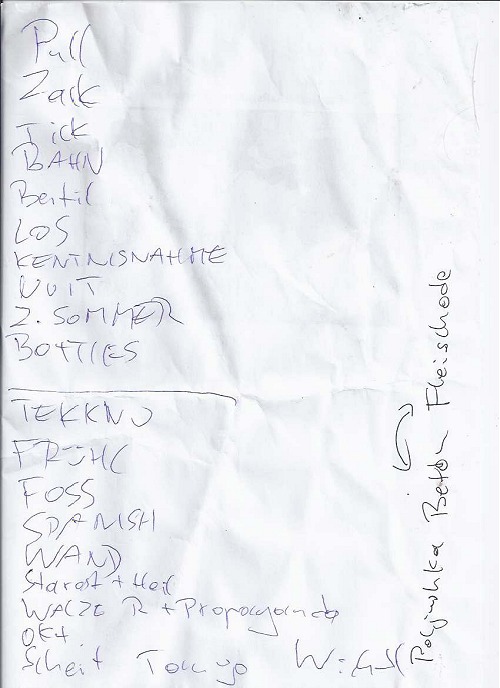 Pull
Zack
Tick
BAHN
Bertil
LOS
KENTNISNAHME
NUIT
2. SOMMER
BOTTLES
TEKKNO
FRÜHC
FOSS
SPANISH
WAND
Starost + Heil
WALZE R + Propaganda
OK4
Scheit Tokyo
Beton Fleischode